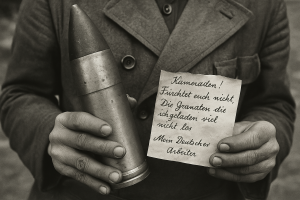 Kameraden!
Fürchtet euch nicht,
Die Granaten die
ichgeladen viel
nicht los
Mein Deutscher
Arbeiter